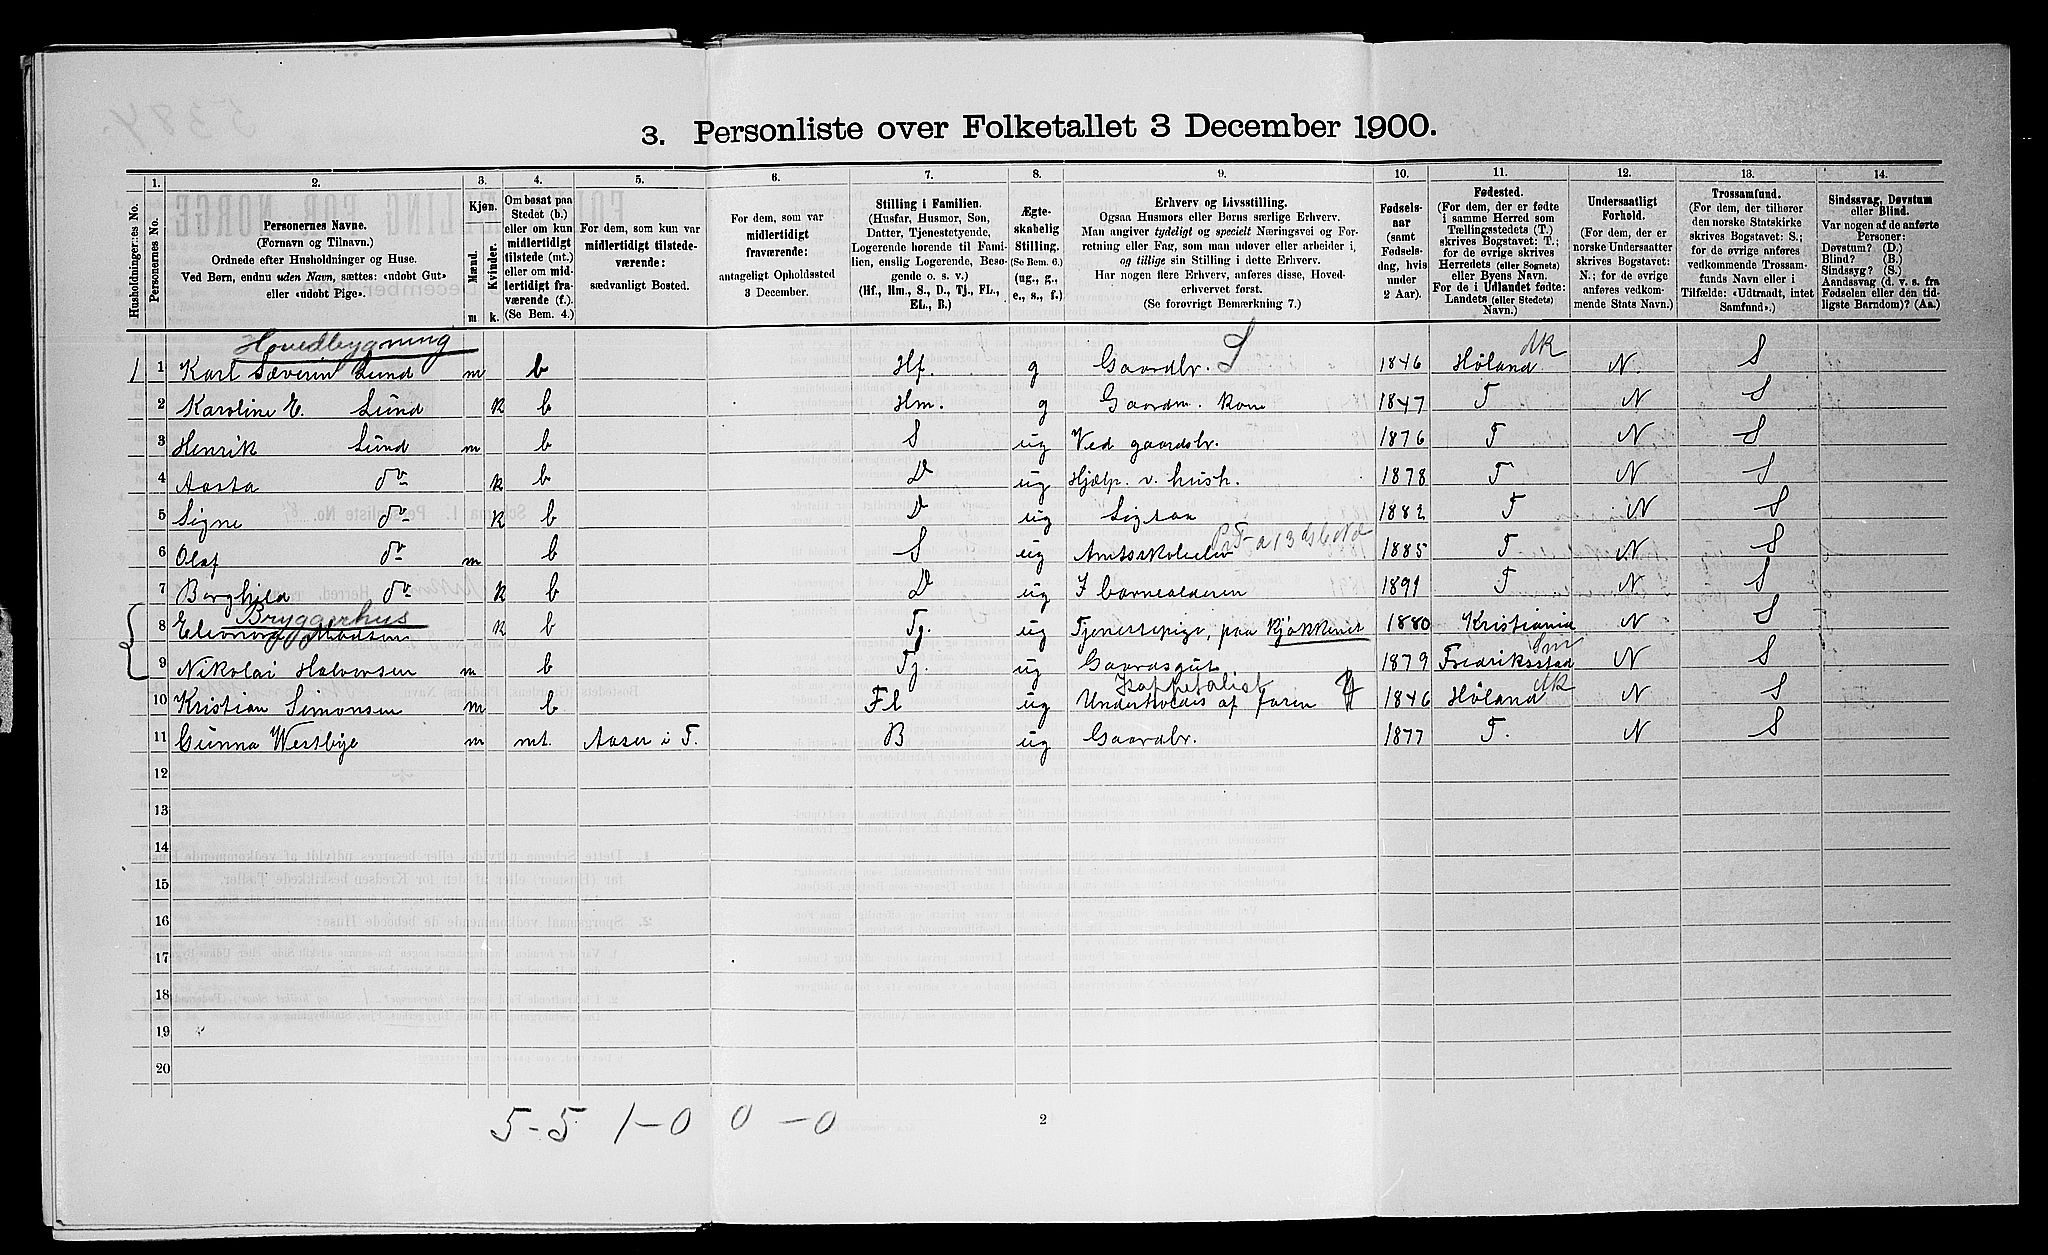 3. Personliste over Folketallet 3 December 1900.
1. 2. 3. 4. 5. 6. 7. 8. 9. 10. 11. 12. 13. 14.
Husholdningernes No.
Personernes No.
Personernes Navne.
(Fornavn og Tilnavn.)
Ordnede efter Husholdninger og Huse.
Ved Børn, endnu uden Navn, sættes: «udobt Gut»
eller «udobt Pige».
Kjøn.
Mænd. Kvinder.
m k.
Om bosat paa
Stedet (b.)
eller om kun
midlertidigt
tilstede (mt.)
eller om mid-
lertidigt fra-
værende (f.).
(Se Bem. 4.)
For dem, som kun var
midlertidigt tilstede-
værende:
sædvanligt Bosted.
For dem, som var
midlertidigt
fraværende:
antageligt Opholdssted
3 December.
Stilling i Familien.
(Husfar, Husmor, Søn,
Datter, Tjenestetyende,
Logerende hørende til Fami-
lien, enslig Logerende, Besø-
gende o. s. v.)
(Hf., Hm., S., D., Tj., FL.,
EL., B.)
Ægte-
skabelig
Stilling.
(Se Bem. 6.)
(ug., g.,
e., s., f.)
Erhverv og Livsstilling.
Ogsaa Husmors eller Børns særlige Erhverv.
Man angiver tydeligt og specielt Næringsvei og For-
retning eller Fag, som man udover eller arbeider i,
og tillige sin Stilling i dette Erhverv.
Har nogen flere Erhverv, anføres disse, Hoved-
erhvervet først.
(Se forøvrigt Bemærkning 7.)
Fødsels-
aar
(samt
Fødsels-
dag, hvis
under
2 Aar).
Fødested.
(For dem, der er fødte
i samme Herred som
Tællingsstedets (T.)
skrives Bogstavet: T.;
for de øvrige skrives
Herredets (eller Sognets)
eller Byens Navn.
For de i Udlandet fødte:
Landets (eller Stedets)
Navn.)
Undersaatligt
Forhold.
(For dem, der er
norske Undersaatter
skrives Bogstavet:
N.; for de øvrige
anføres vedkom-
mende Stats Navn.)
Trossamfund.
(For dem, der tilhører
den norske Statskirke
skrives Bogstavet: S.;
for de øvrige anføres
vedkommende Trossam-
funds Navn eller i
Tilfælde: «Udtraadt, intet
Samfund».)
Sindssvag, Døvstum
eller Blind.
Var nogen af de anførte
Personer:
Døvstum? (D.)
Blind? (B.)
Sindssyg? (S.)
Aandssvag (d. v. s. fra
Fødselen eller den tid-
ligste Barndom)? (Aa.)
Hovedbygning
1 1 Karl Severin Lund m b Hf g Gaardbr. S 1846 Høland dk N. S
2 Karoline E. Lund k b Hm. g Gaardm. kone 1847 T N S
3 Henrik Lund m b S ug Ved gaardsbr. 1876 T N S
4 Aasta do k b D ug Hjælp. v. hush. 1878 T N S
5 Signe do k b D ug Sigtaa 1882 T N S
6 Olaf do m b S ug Amtsskoleelev 1885 T N S
7 Borghild do k b D ug I barnealderen 1891 T N S
Bryggerhus
8 Eleonora Madsen k b Tj. ug Tjenestepige, paa kjøkkenet 1880 Kristiania N S
9 Nikolai Halvorsen m b Tj. ug Gaardsgut 1879 Fredriksstad Sm N S
Kappetalist
10 Kristian Simonsen m b Fl ug Underholdes af faren 1846 Høland dk N S
11 Gunna Westbye m mt. Aaser i T. B ug Gaardbr. 1877 T. N S
12
13
14
15
16
17
18
19
20
5-5 1-0 0-0
2